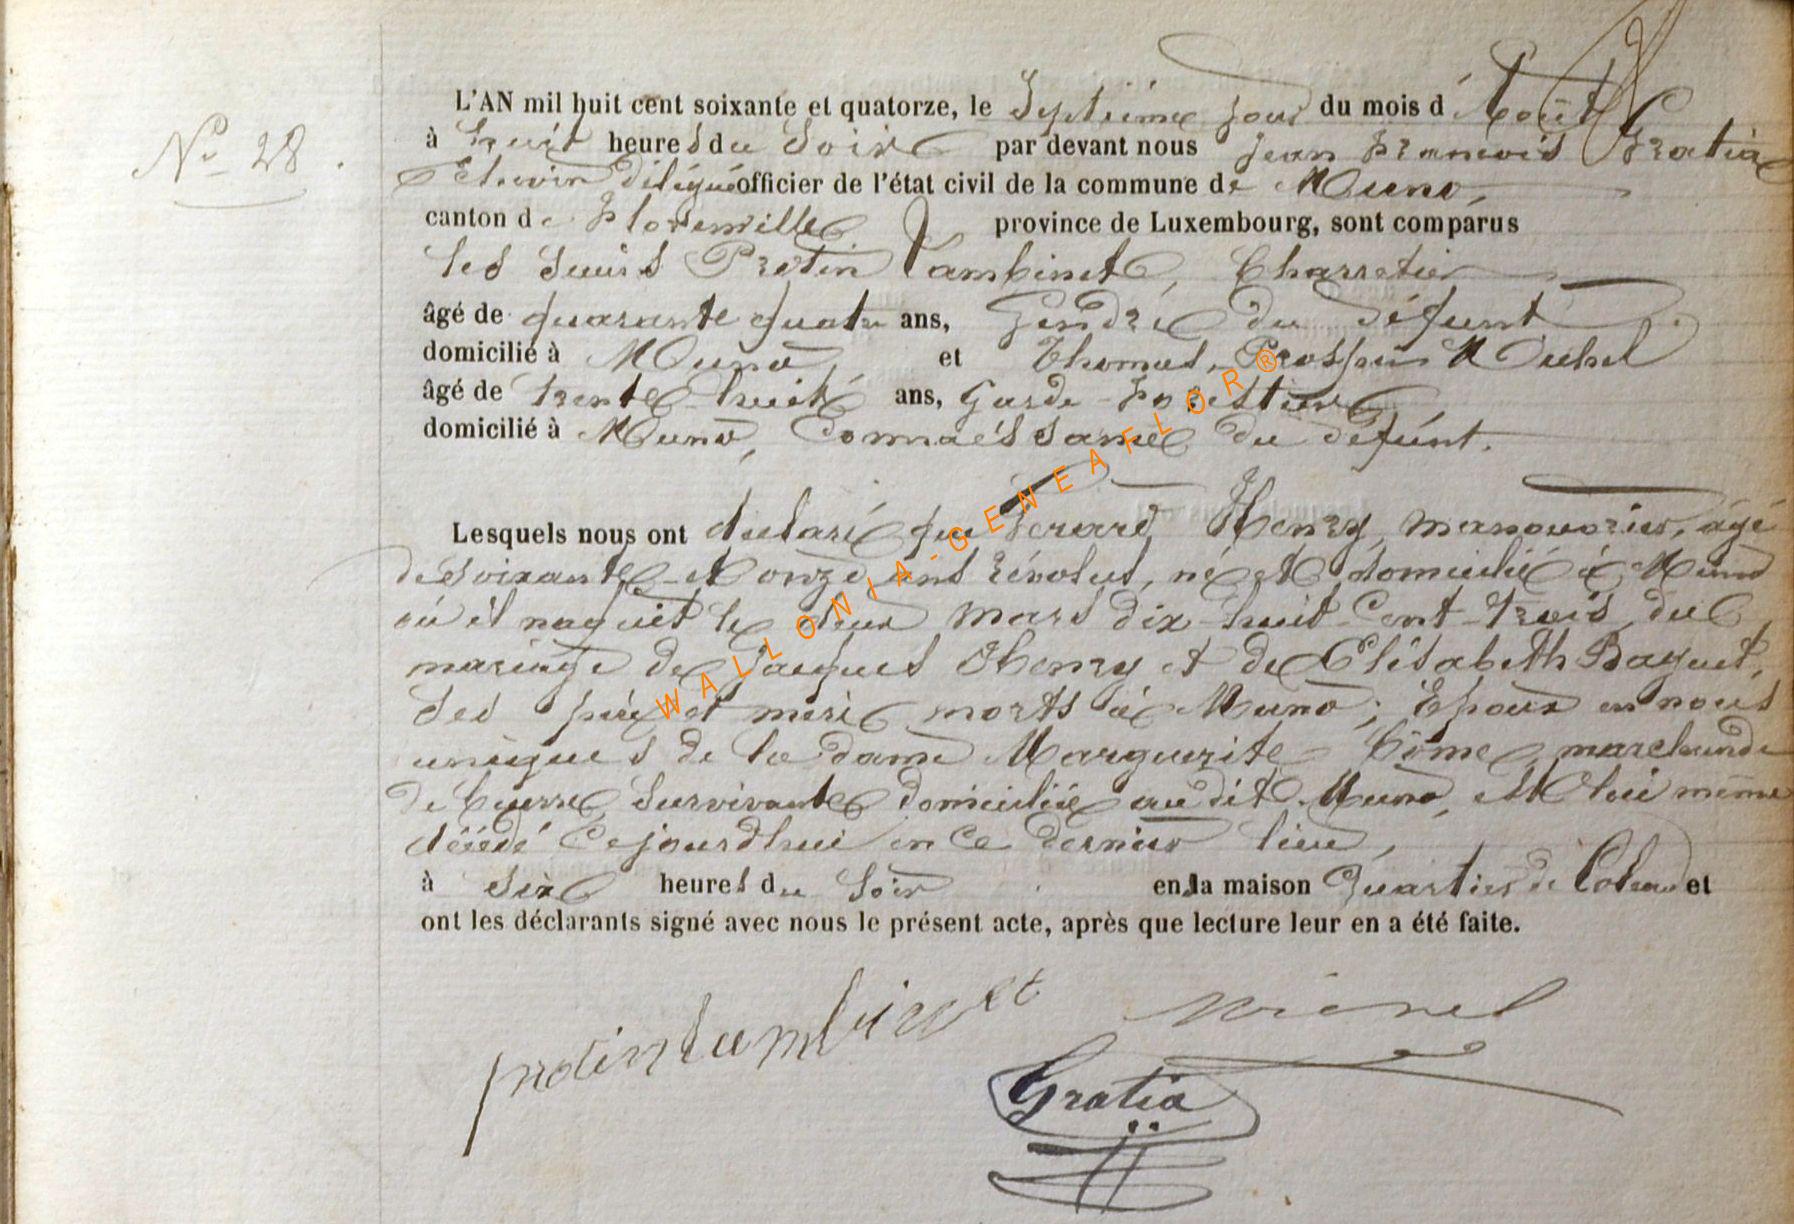 N° 28.
L'AN mil huit cent soixante et quatorze, le Septième jour du mois d'Août
à huit heures du Soir par devant nous Jean François Gratia
Echevin délégué officier de l'état civil de la commune de Muno,
canton de Florenville province de Luxembourg, sont comparus
les sieurs Protin Lambinet, Charretier
âgé de quarante quatre ans, Gendre du défunt
domicilié à Muno, et Thomas, Prosper Michel
âgé de trente huit ans, Garde-forestier
domicilié à Muno, Connaissance du défunt.
Lesquels nous ont déclaré que Gérard Henry, manouvrier, âgé
de soixante et onze ans révolus, né et domicilié à Muno
où il naquit le deux mars dix-huit-cent-trois, du
mariage de Jacques Henry et de Elisabeth Baquet,
ses père et mère morts à Muno; Epoux en noces
uniques de la dame Marguerite Côme, marchande
de survivante domiciliée au dit Muno, et lui même
décédé cejourd'hui en ce dernier lieu,
à Six heures du Soir en la maison Quartier de et
ont les déclarants signé avec nous le présent acte, après que lecture leur en a été faite.
protin lambinet
Michel
Gratia
WALLONIA-GENEAFLOR®